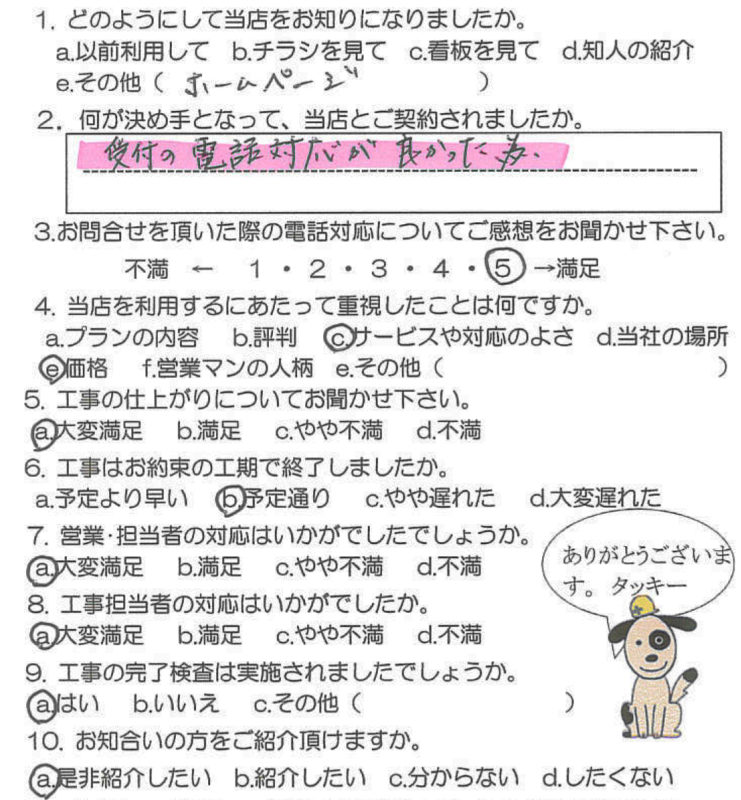 1. どのようにして当店をお知りになりましたか。
a.以前利用して b.チラシを見て c.看板を見て d.知人の紹介
e.その他（ ホームページ ）
2. 何が決め手となって、当店とご契約されましたか。
受付の電話対応が良かった為、
3.お問合せを頂いた際の電話対応についてご感想をお聞かせ下さい。
不満 ← 1・2・3・4・5 →満足
4. 当店を利用するにあたって重視したことは何ですか。
a.プランの内容 b.評判 c.サービスや対応のよさ d.当社の場所
e.価格 f.営業マンの人柄 e.その他（ ）
5. 工事の仕上がりについてお聞かせ下さい。
a.大変満足 b.満足 c.やや不満 d.不満
6. 工事はお約束の工期で終了しましたか。
a.予定より早い b.予定通り c.やや遅れた d.大変遅れた
7. 営業・担当者の対応はいかがでしたでしょうか。
a.大変満足 b.満足 c.やや不満 d.不満
ありがとうございま
す。 タッキー
8. 工事担当者の対応はいかがでしたか。
a.大変満足 b.満足 c.やや不満 d.不満
9. 工事の完了検査は実施されましたでしょうか。
a.はい b.いいえ c.その他（ ）
10. お知合いの方をご紹介頂けますか。
a.是非紹介したい b.紹介したい c.分からない d.したくない